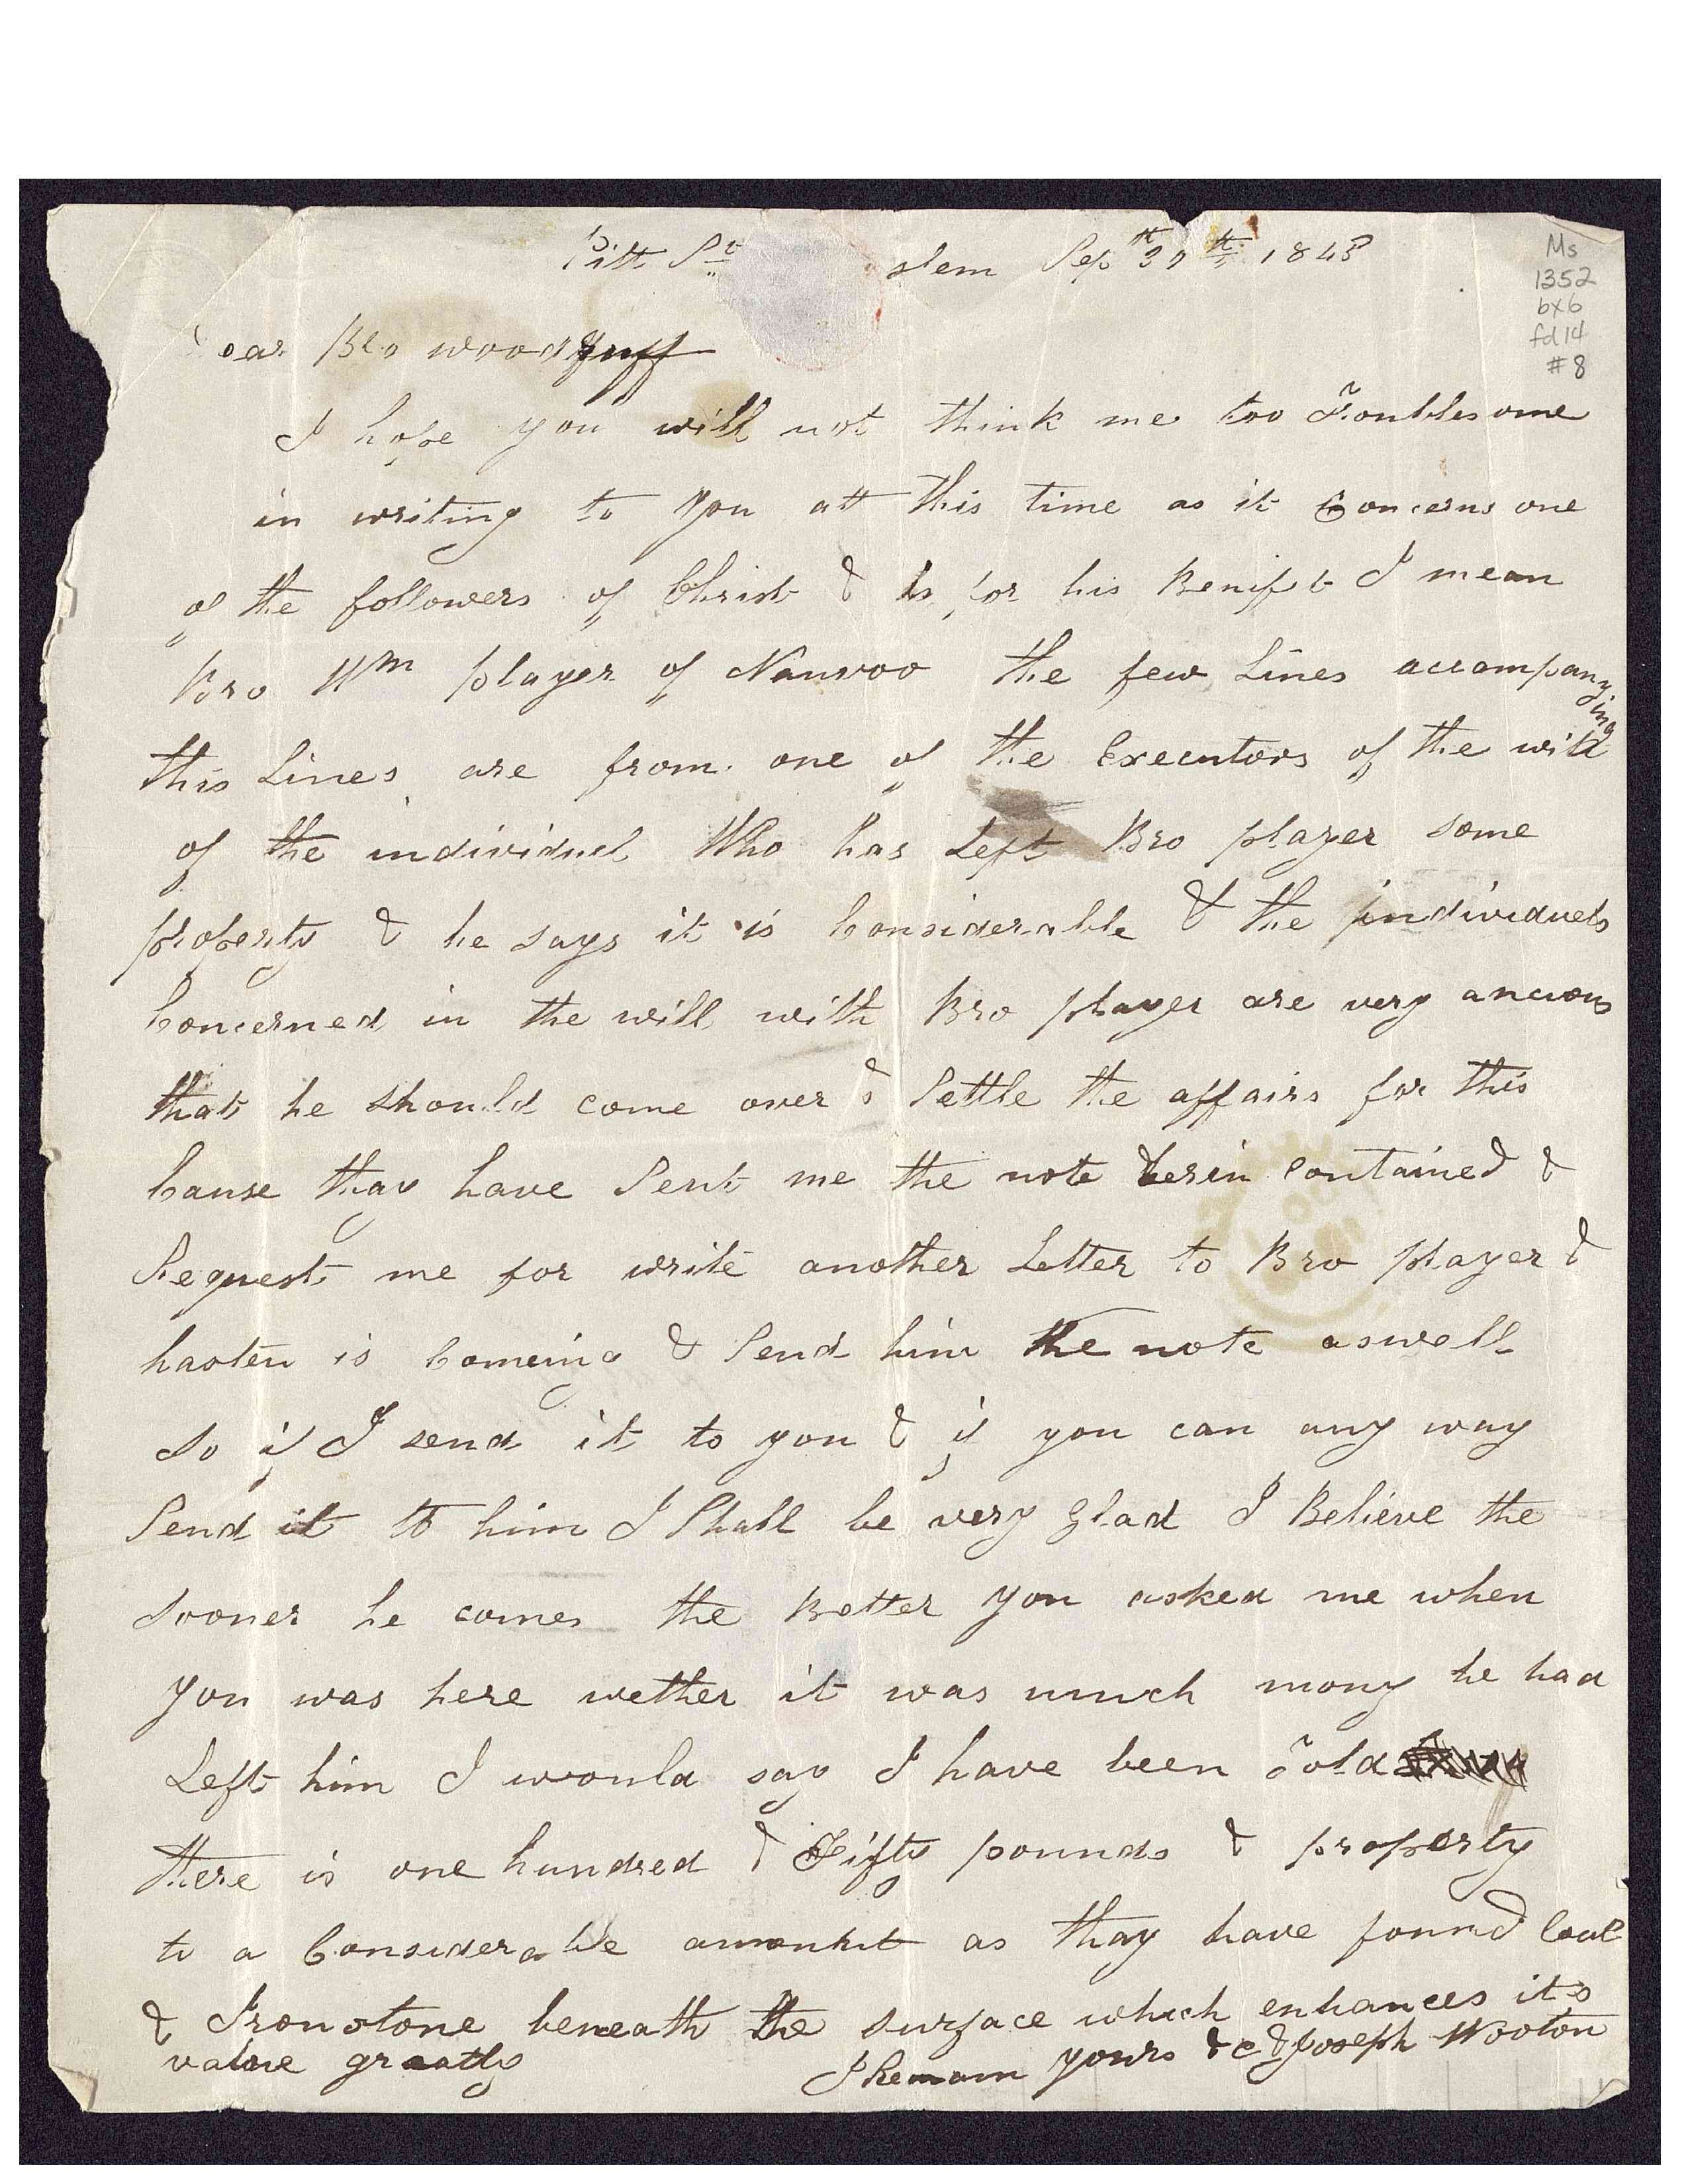 Pitt St slem Sept 30th 1845
ear Bro woodruff
I hope you will not think me too Troublesome
in writing to you att this time as it Concerns one
of the followers of Christ & is for his Benifit I mean
Bro Wm player of Nauvoo the few Lines accompanying
this Lines are from one of the Executors of the will
of the individuel Who has Left Bro player some
property & he says it is Considerable & the individuels
Concerned in the will with Bro player are very ancious
that he should come over & Settle the affairs for this
Cause thay have Sent me the note herin Contained &
Request me for write another Letter to Bro player &
hasten is Comeing & Send him the note aswell
So if I send it to you & if you can any way
Send it to him I Shall be very glad I Believe the
Sooner he comes the Better you asked me when
you was here wether it was much mony he had
Left him I would say I have been Told
there is one hundred & Fifty pounds & property
to a Considerable amount as thay have found Coal
& Ironstone beneath the surface which enhances its
value greatly I Remain yours &c & Joseph Wooton
Ms
1352
bx6
fd14
#8